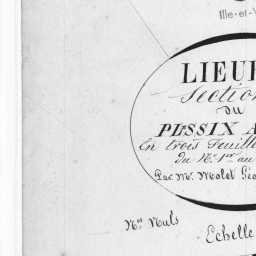 Ille-et-V
LIEUR
Section
DU
PLESSIX A
En trois Feuille
du N.º 1.er au
Par Mr. Molet Géo
Nos Nuls
Echelle